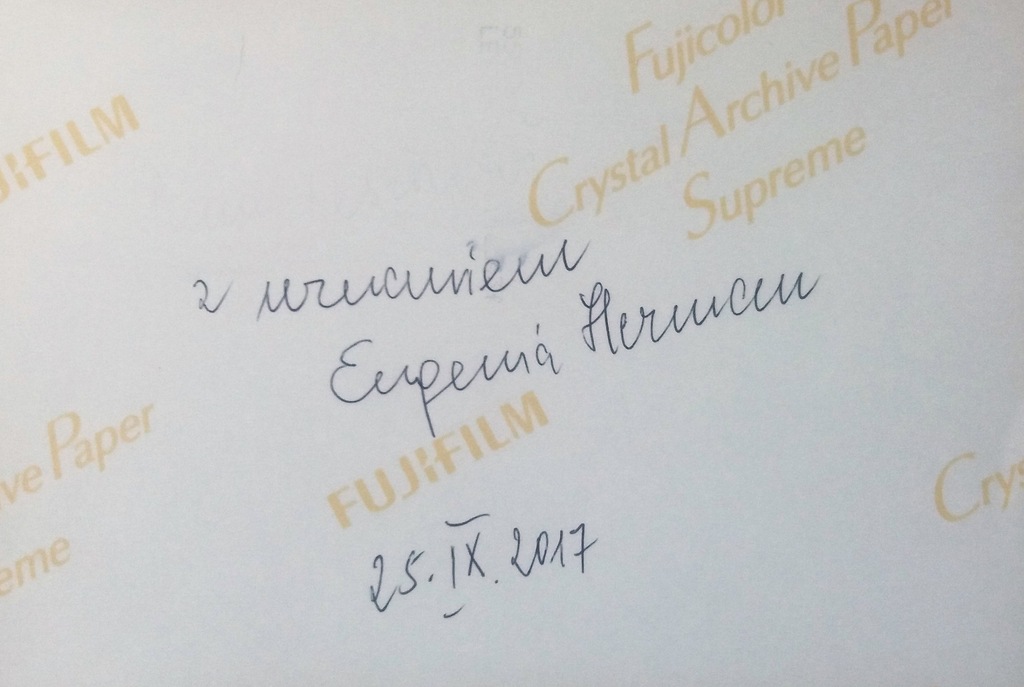 Fujicolor
Crystal Archive Paper
Supreme
JIFILM
z uznaniem
Eugenia Herman
FUJIFILM
ve Paper
eme
Crys
25.IX.2017